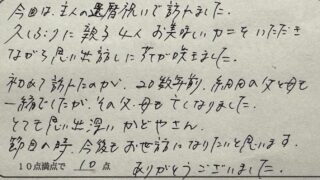 今回は、主人の還暦祝いで訪れました。
久しぶりに親子4人お美味しいカニをいただき
ながら思い出話しに花が咲きました。
初めて訪れたのが、20数年前、父と母も
一緒でしたが、その父・母も亡くなりました。
とても思い出深いかどやさん。
節目の時、今後もお世話になりたいと思います。
10点満点で 10 点 ありがとうございました。